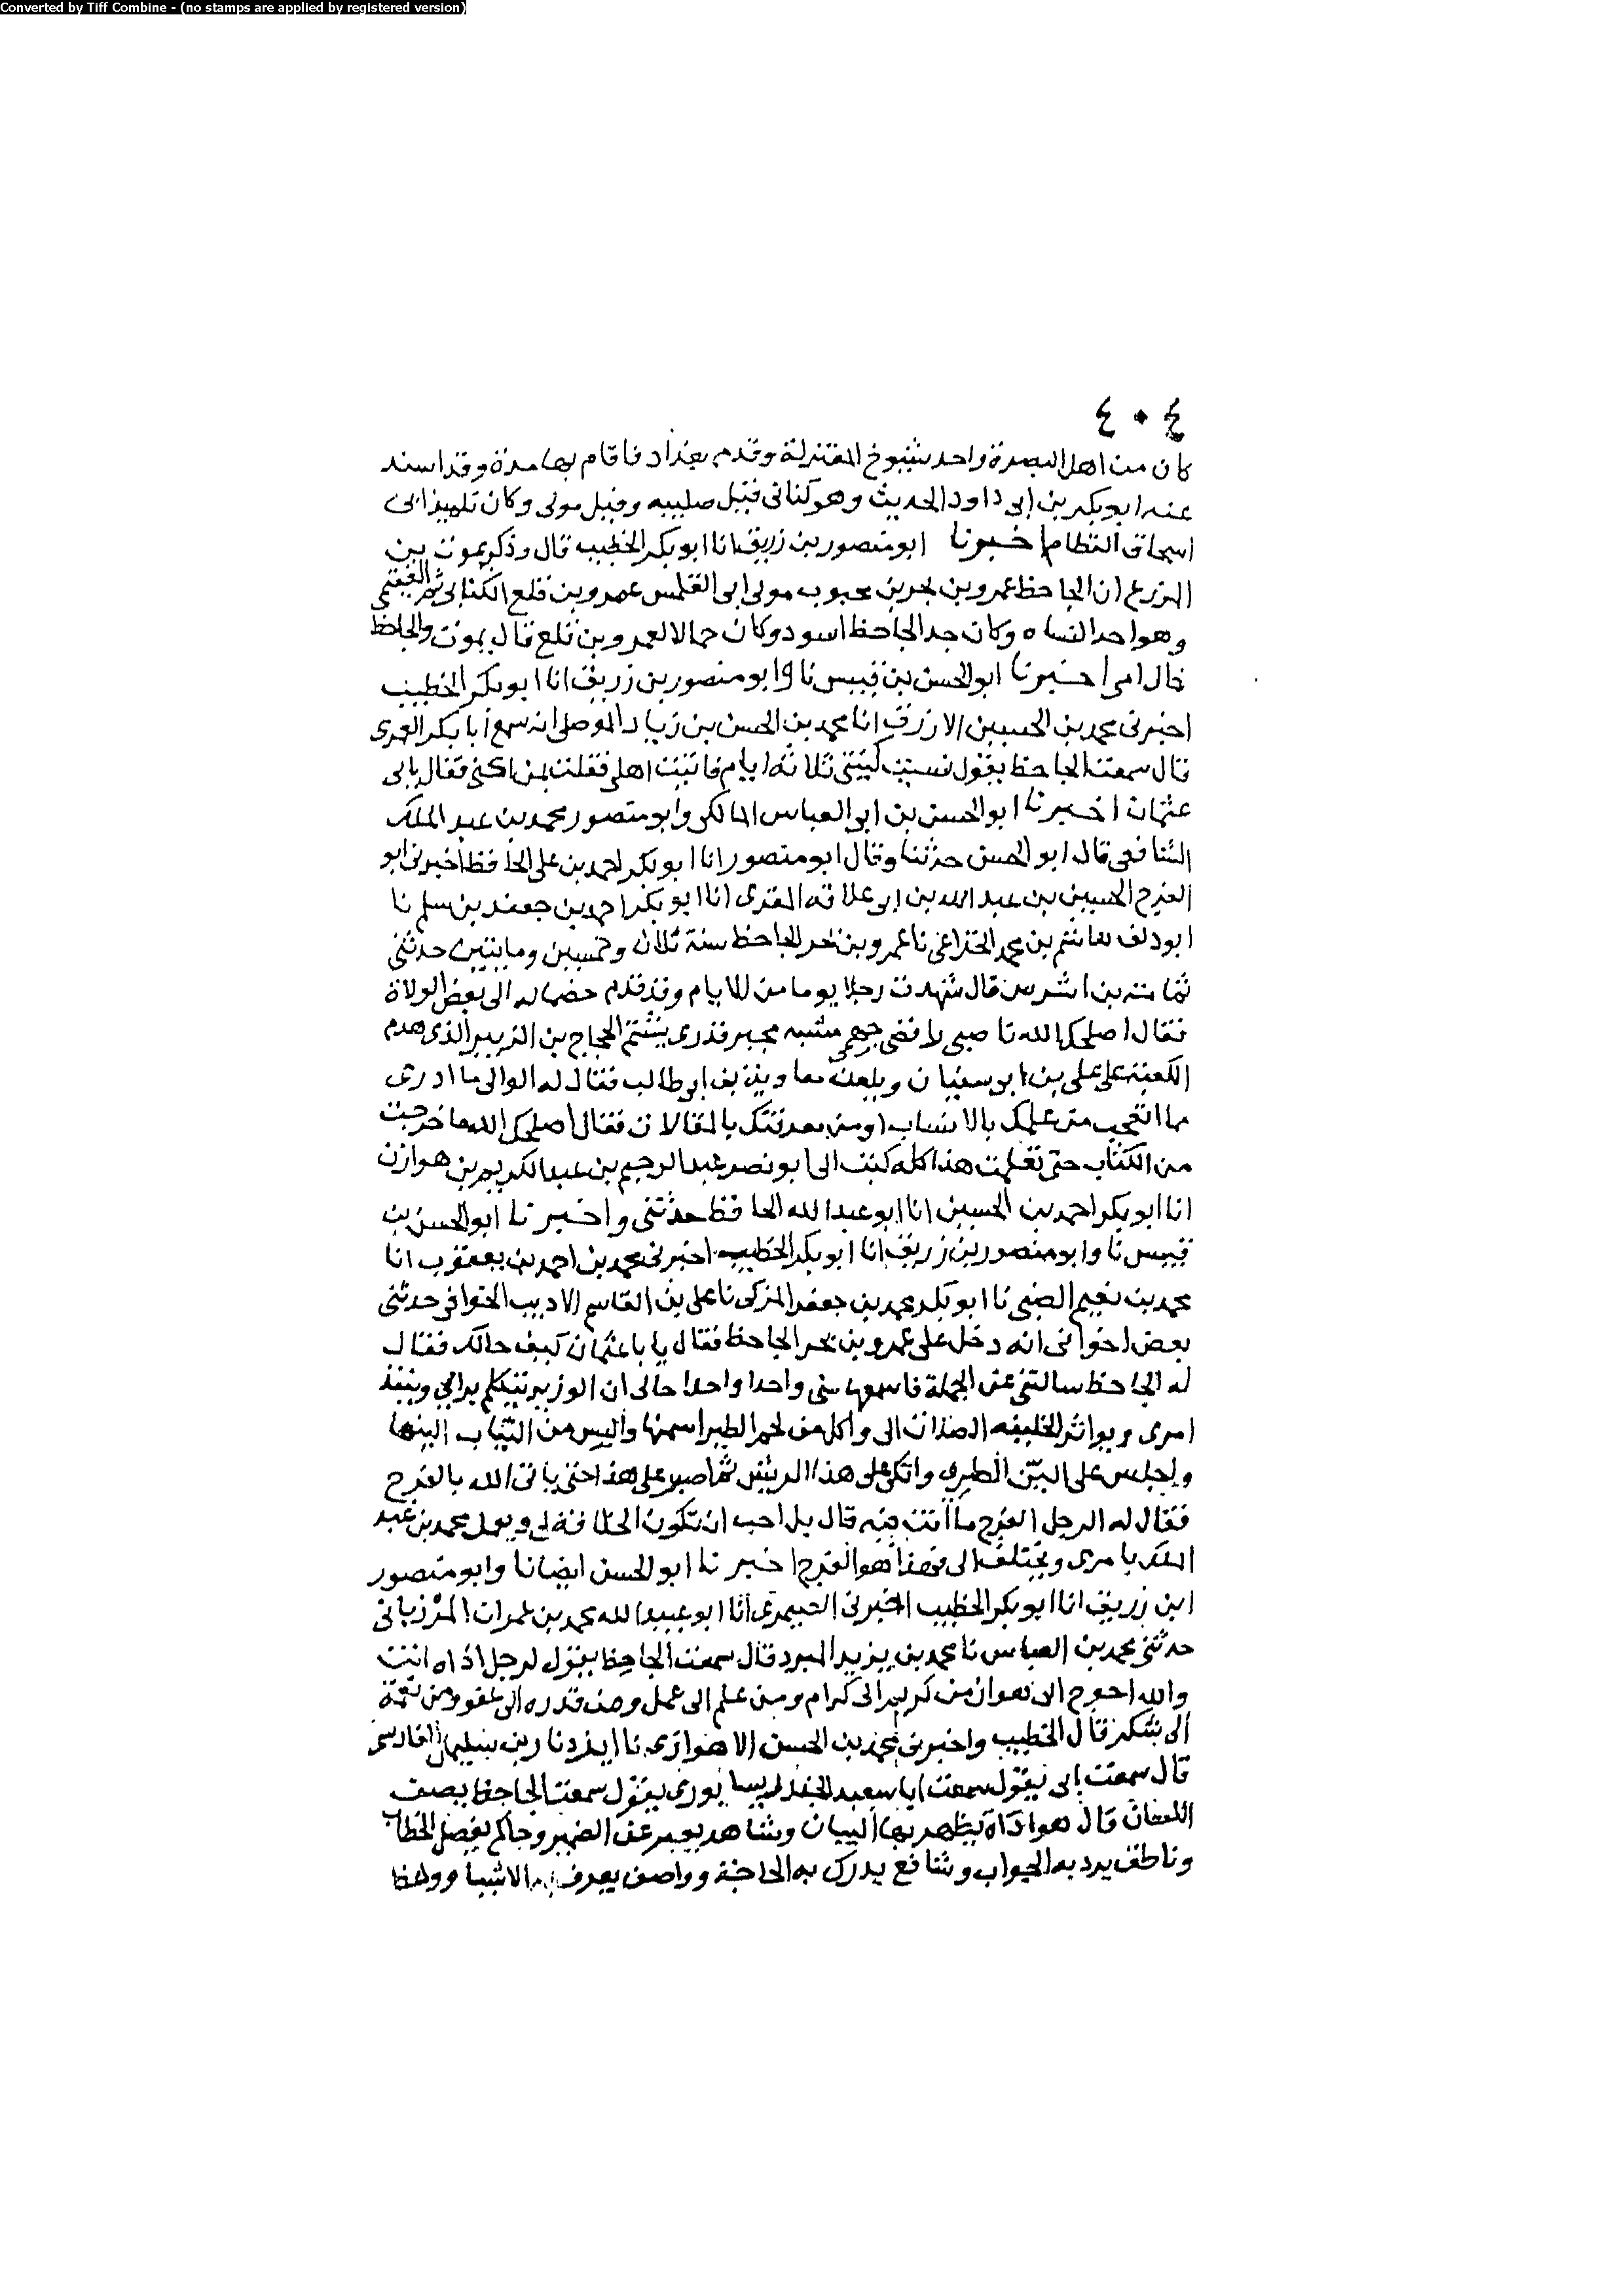 Converted by Tiff Combine - (no stamps are applied by registered version)
٤٠٤
كان من اهل البصرة واحد شيوخ المعتزلة وقدم بغداد فاقام بها مدة وقد اسند
عنه ابو بكر بن ابى داود الحديث وهو كنانى قيل صليبه وقيل مولى وكان تلميذ ابى
اسحاق النظام اخبرنا ابو منصور بن زريق انا ابو بكر الخطيب قال وذكر يموت بن
المزرع ان الجاحظ عمرو بن بحر بن محبوب مولى ابى القلمس عمرو بن قلع الكنانى ثم الفقيمى
وهو احد النساه وكان جد الجاحظ اسود وكان جمالا لعمرو بن قلع قال يموت والجاحظ
خال امى اخبرنا ابو الحسن بن قبيس نا وابو منصور بن زريق انا ابو بكر الخطيب
اخبرنى محمد بن الحسين الازرق انا محمد بن الحسن بن زياد الموصلى انه سمع ابا بكر العمرى
قال سمعت الجاحظ يقول نسيت كنيتى ثلاثة ايام فاتيت اهلى فقلت بمن اكنى فقال بابى
عثمان اخبرنا ابو الحسن بن ابى العباس المالكى وابو منصور محمد بن عبد الملك
الشافعى قال ابو الحسن حدثنا وقال ابو منصور انا ابو بكر احمد بن على الحافظ اخبرنى ابو
الفرج الحسين بن عبد الله بن ابى علاقه المقرى انا ابو بكر احمد بن جعفر بن سلم نا
ابو دلف هاشم بن محمد الخزاعى نا عمرو بن بحر الجاحظ سنة ثلاث وخمسين ومايتين حدثنى
ثمامه بن اشرس قال شهدت رجلا يوما من الايام وقد قدم خصما له الى بعض الولاة
فقال اصلحك الله ناصبى رافضى جهمى مشبه مجبر قدرى يشتم الحجاج بن الزبير الذى هدم
الكعبة على على بن ابى سفيان ويلعن معاوية بن ابى طالب فقال له الوالى ما ادرى
مما اتعجب من علمك بالانساب او من معرفتك بالمقالات فقال اصلحك الله ما خرجت
من الكتاب حتى تعلمت هذا كله كتب الى ابو نصر عبد الرحيم بن عبد الكريم بن هوازن
انا ابو بكر احمد بن الحسين انا ابو عبد الله الحافظ حدثنى واخبرنا ابو الحسن بن
قبيس نا وابو منصور بن زريق انا ابو بكر الخطيب اخبرنى محمد بن احمد بن يعقوب انا
محمد بن نعيم الضبى نا ابو بكر محمد بن جعفر المزكى نا على بن القاسم الاديب الخوافى حدثنى
بعض اخوانى انه دخل على عمرو بن بحر الجاحظ فقال يا با عثمان كيف حالك فقال
له الجاحظ سالتنى عن الجملة فاسمعها منى واحدا واحدا حالى ان الوزير يتكلم برايى وينفذ
امرى ويواتر الخليفه الصلات الى واكل من لحم الطير اسمنها والبس من الثياب الينها
واجلس على الين الطبرى واتكى على هذا الريش ثم اصبر على هذا حتى ياتى الله بالفرج
فقال له الرجل الفرج ما انت فيه قال بل احب ان تكون الخلافه لى ويعمل محمد بن عبد
الملك بامرى ويختلف الى فهذا هو الفرج اخبرنا ابو الحسن ايضا نا وابو منصور
ابن زريق انا ابو بكر الخطيب اخبرنى الصيمرى انا ابو عبيد الله محمد بن عمران المرزبانى
حدثنى محمد بن العباس نا محمد بن يزيد المبرد قال سمعت الجاحظ يقول لرجل اذاه انت
والله احوج الى هوان من كريم الى كرام ومن علم الى عمل ومن قدره الى عفو ومن نعمة
الى شكر قال الخطيب واخبرنى محمد بن الحسن الاهوازى نا ايزديار بن سليمان الفارسى
قال سمعت ابى يقول سمعت ابا سعيد الجنديسابورى يقول سمعت الجاحظ يصف
اللسان قال هو اداة يظهر بها البيان وشاهد يعبر عن الضمير وحاكم يفصل الخطاب
وناطق يرد به الجواب وشافع يدرك به الحاجة وواصف يعرف به الاشيا وواعظ